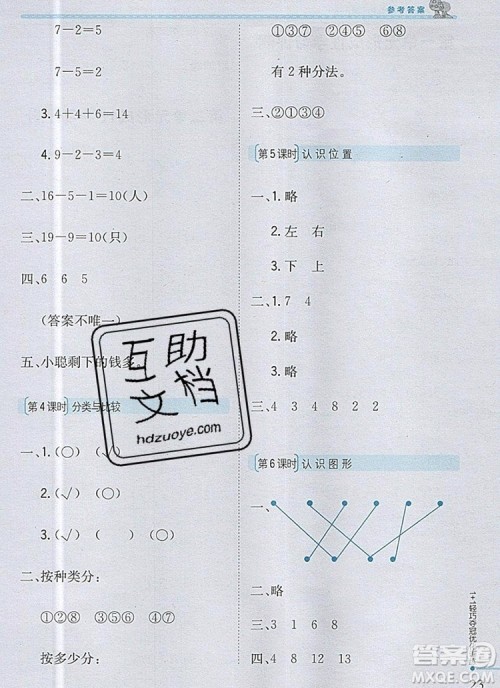 参考答案
7－2＝5
7－5＝2
3. 4＋4＋6＝14
4. 9－5＝4
二、16－5－1＝10(人)
三、19－9＝10(只)
四、6 6 5
(答案不唯一)
五、小聪剩下的钱多。
第4课时 分类与比较
一、1. (○) (√)
2. (√) ( ) (○)
二、按种类分：
①②⑧ ③⑤⑥ ④⑦
按多少分：
①③⑦ ②④⑤ ⑥⑧
有 2 种分法。
三、②①③④
第5课时 认识位置
一、1. 略
2. 左 右
3. 下 上
二、1. 7 4
2. 略
三、略
四、3 4 8 2 2
第6课时 认识图形
一、
二、略
三、3 1 6 8
四、4 8 12 13
互助文档
hdzuoye.com
1+1轻巧夺冠优
答案圈